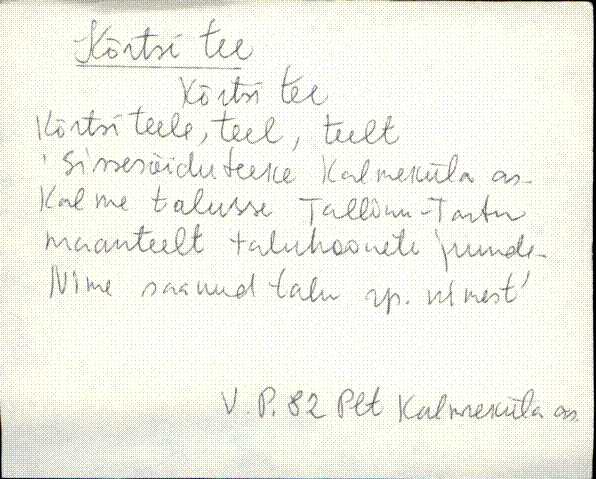 Kõrtsi tee
Kõrtsi tee
Kõrtsi teele, teel, teelt
'Sissesõiduteeke Kalmeküla as.
Kalme talusse Tallinn-Tartu
maanteelt taluhoonete juurde.
Nime saanud talu rp. nimest'
V. P. 82 Plt Kalmeküla as.